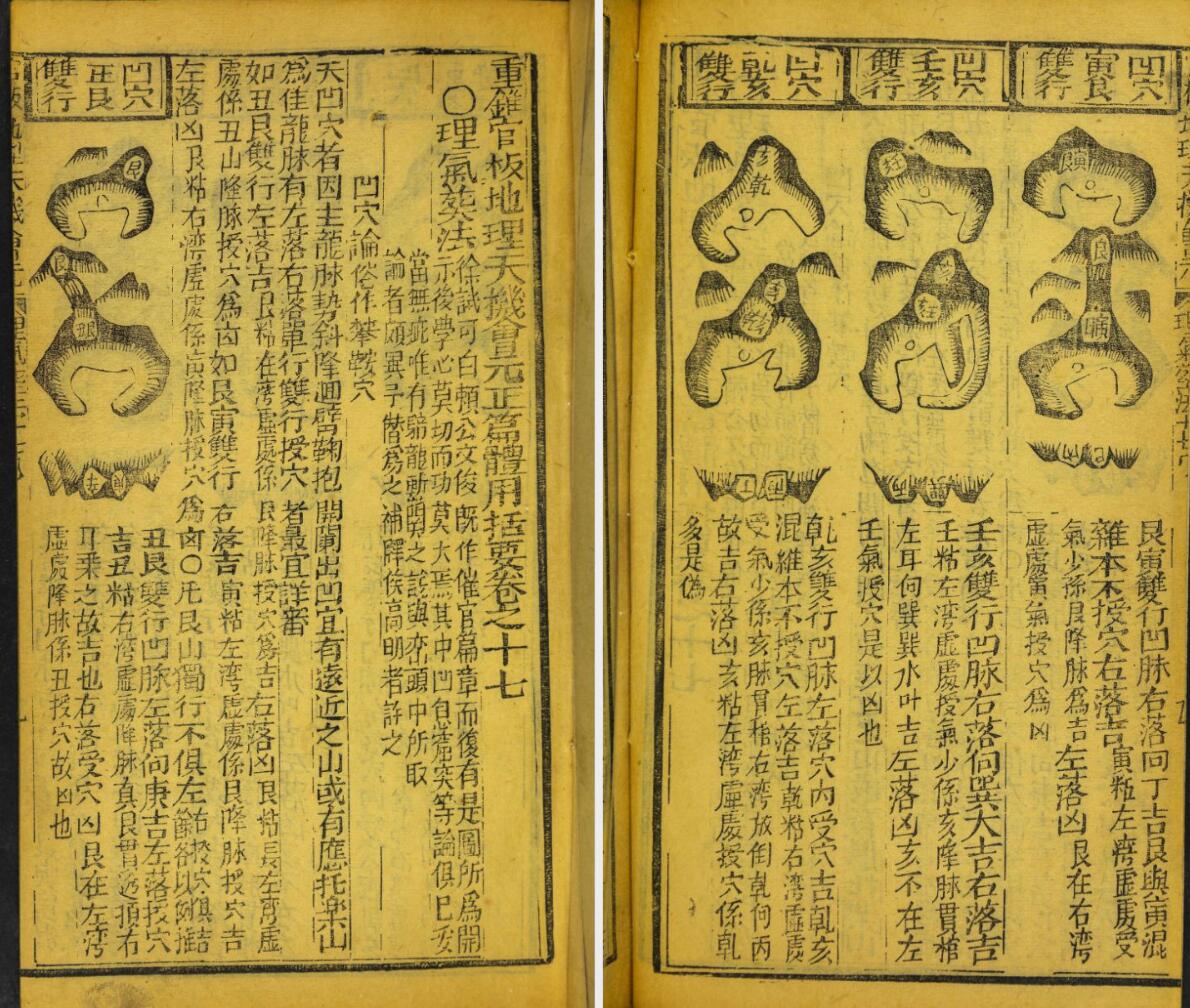 重鐫官板地理天機會元正篇體用括要卷之十七
〇理氣葬法
徐試可白賴公文俊既作催官篇章而復有是圖所爲開
示後學心莫切而功莫大焉其中凹自窩突等論俱已妥
當無疵唯有
論者頗異予僣爲之補解俟高明者詳之
凹穴論俗作攀鞍穴
天凹穴者因主龍脉勢斜降迴臂鞠抱開闌出凹宜有遠近之山或有應托樂山
爲佳龍脉有左落右落單行雙行授穴者最宜詳審
如丑艮雙行左落吉艮粘在灣虛處係艮降脉授穴爲吉右落凶艮粘
處係丑山降脉授穴爲凶如艮寅雙行右落吉寅粘左灣虛處係艮降脉授穴吉
左落凶艮粘右灣虛處係寅降脉授穴爲凶〇凡艮山獨行不俱左右授穴俱吉
凹穴
丑艮
雙行
艮
艮
丑艮雙行凹脉左落向庚吉左落授穴
吉丑粘右灣虛處降脉真艮貫透頂右
耳乘之故吉也右落受穴凶艮在左灣
虛處降脉係丑授穴故凶也
凹穴
寅艮
雙行
艮寅
艮
艮寅雙行凹脉右落向丁吉艮與寅混
雜本不授穴右落吉寅粘左灣虛處受
氣少孫艮降脉爲吉左落凶艮在右灣
虛處寅氣授穴爲凶
凹穴
壬亥
雙行
亥
壬亥雙行凹脉右落向巽大吉右落吉
壬粘左灣虛處授氣少係亥降脉貫棺
左耳向巽巽水叶吉左落凶亥不在左
壬氣授穴是以凶也
凹穴
乾亥
雙行
亥
乾
乾亥雙行凹脉左落穴內受穴吉乾亥
混維本不授穴左落吉乾粘右灣虛處
受氣少係亥脉貫棺右灣放倒乾向丙
故吉右落凶亥粘左灣虛處授穴係乾
多是偽